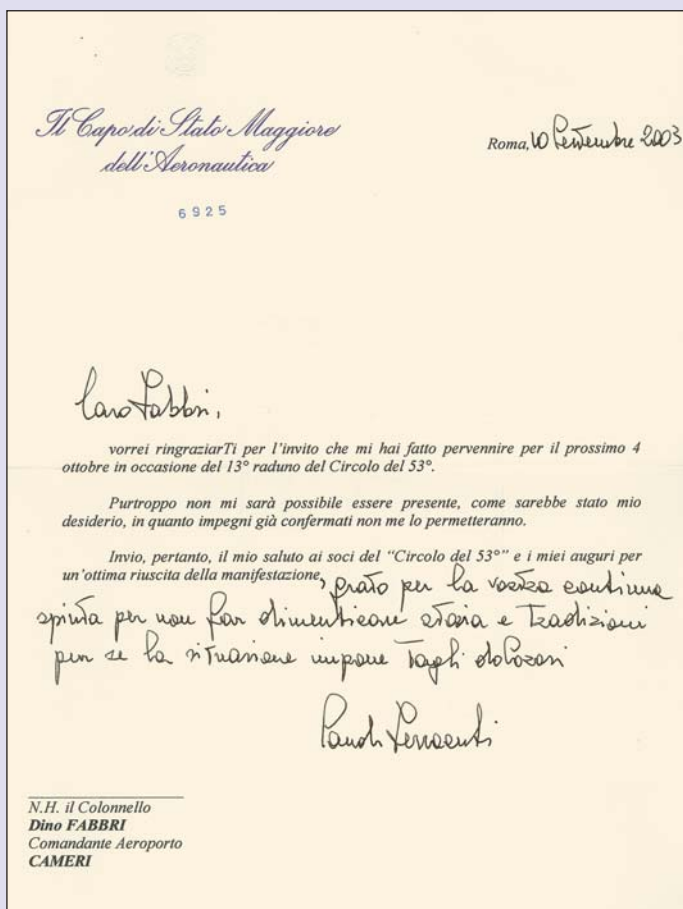 Il Capo di Stato Maggiore
dell'Aeronautica
Roma, 10 Settembre 2003
6925
Caro Fabbri,
vorrei ringraziarTi per l'invito che mi hai fatto pervennire per il prossimo 4
ottobre in occasione del 13° raduno del Circolo del 53°.
Purtroppo non mi sarà possibile essere presente, come sarebbe stato mio
desiderio, in quanto impegni già confermati non me lo permetteranno.
Invio, pertanto, il mio saluto ai soci del "Circolo del 53°" e i miei auguri per
un'ottima riuscita della manifestazione, grato per la vostra continua
spinta per non far dimenticare storia e tradizioni
pur se la situazione impone tagli dolorosi
N.H. il Colonnello
Dino FABBRI
Comandante Aeroporto
CAMERI